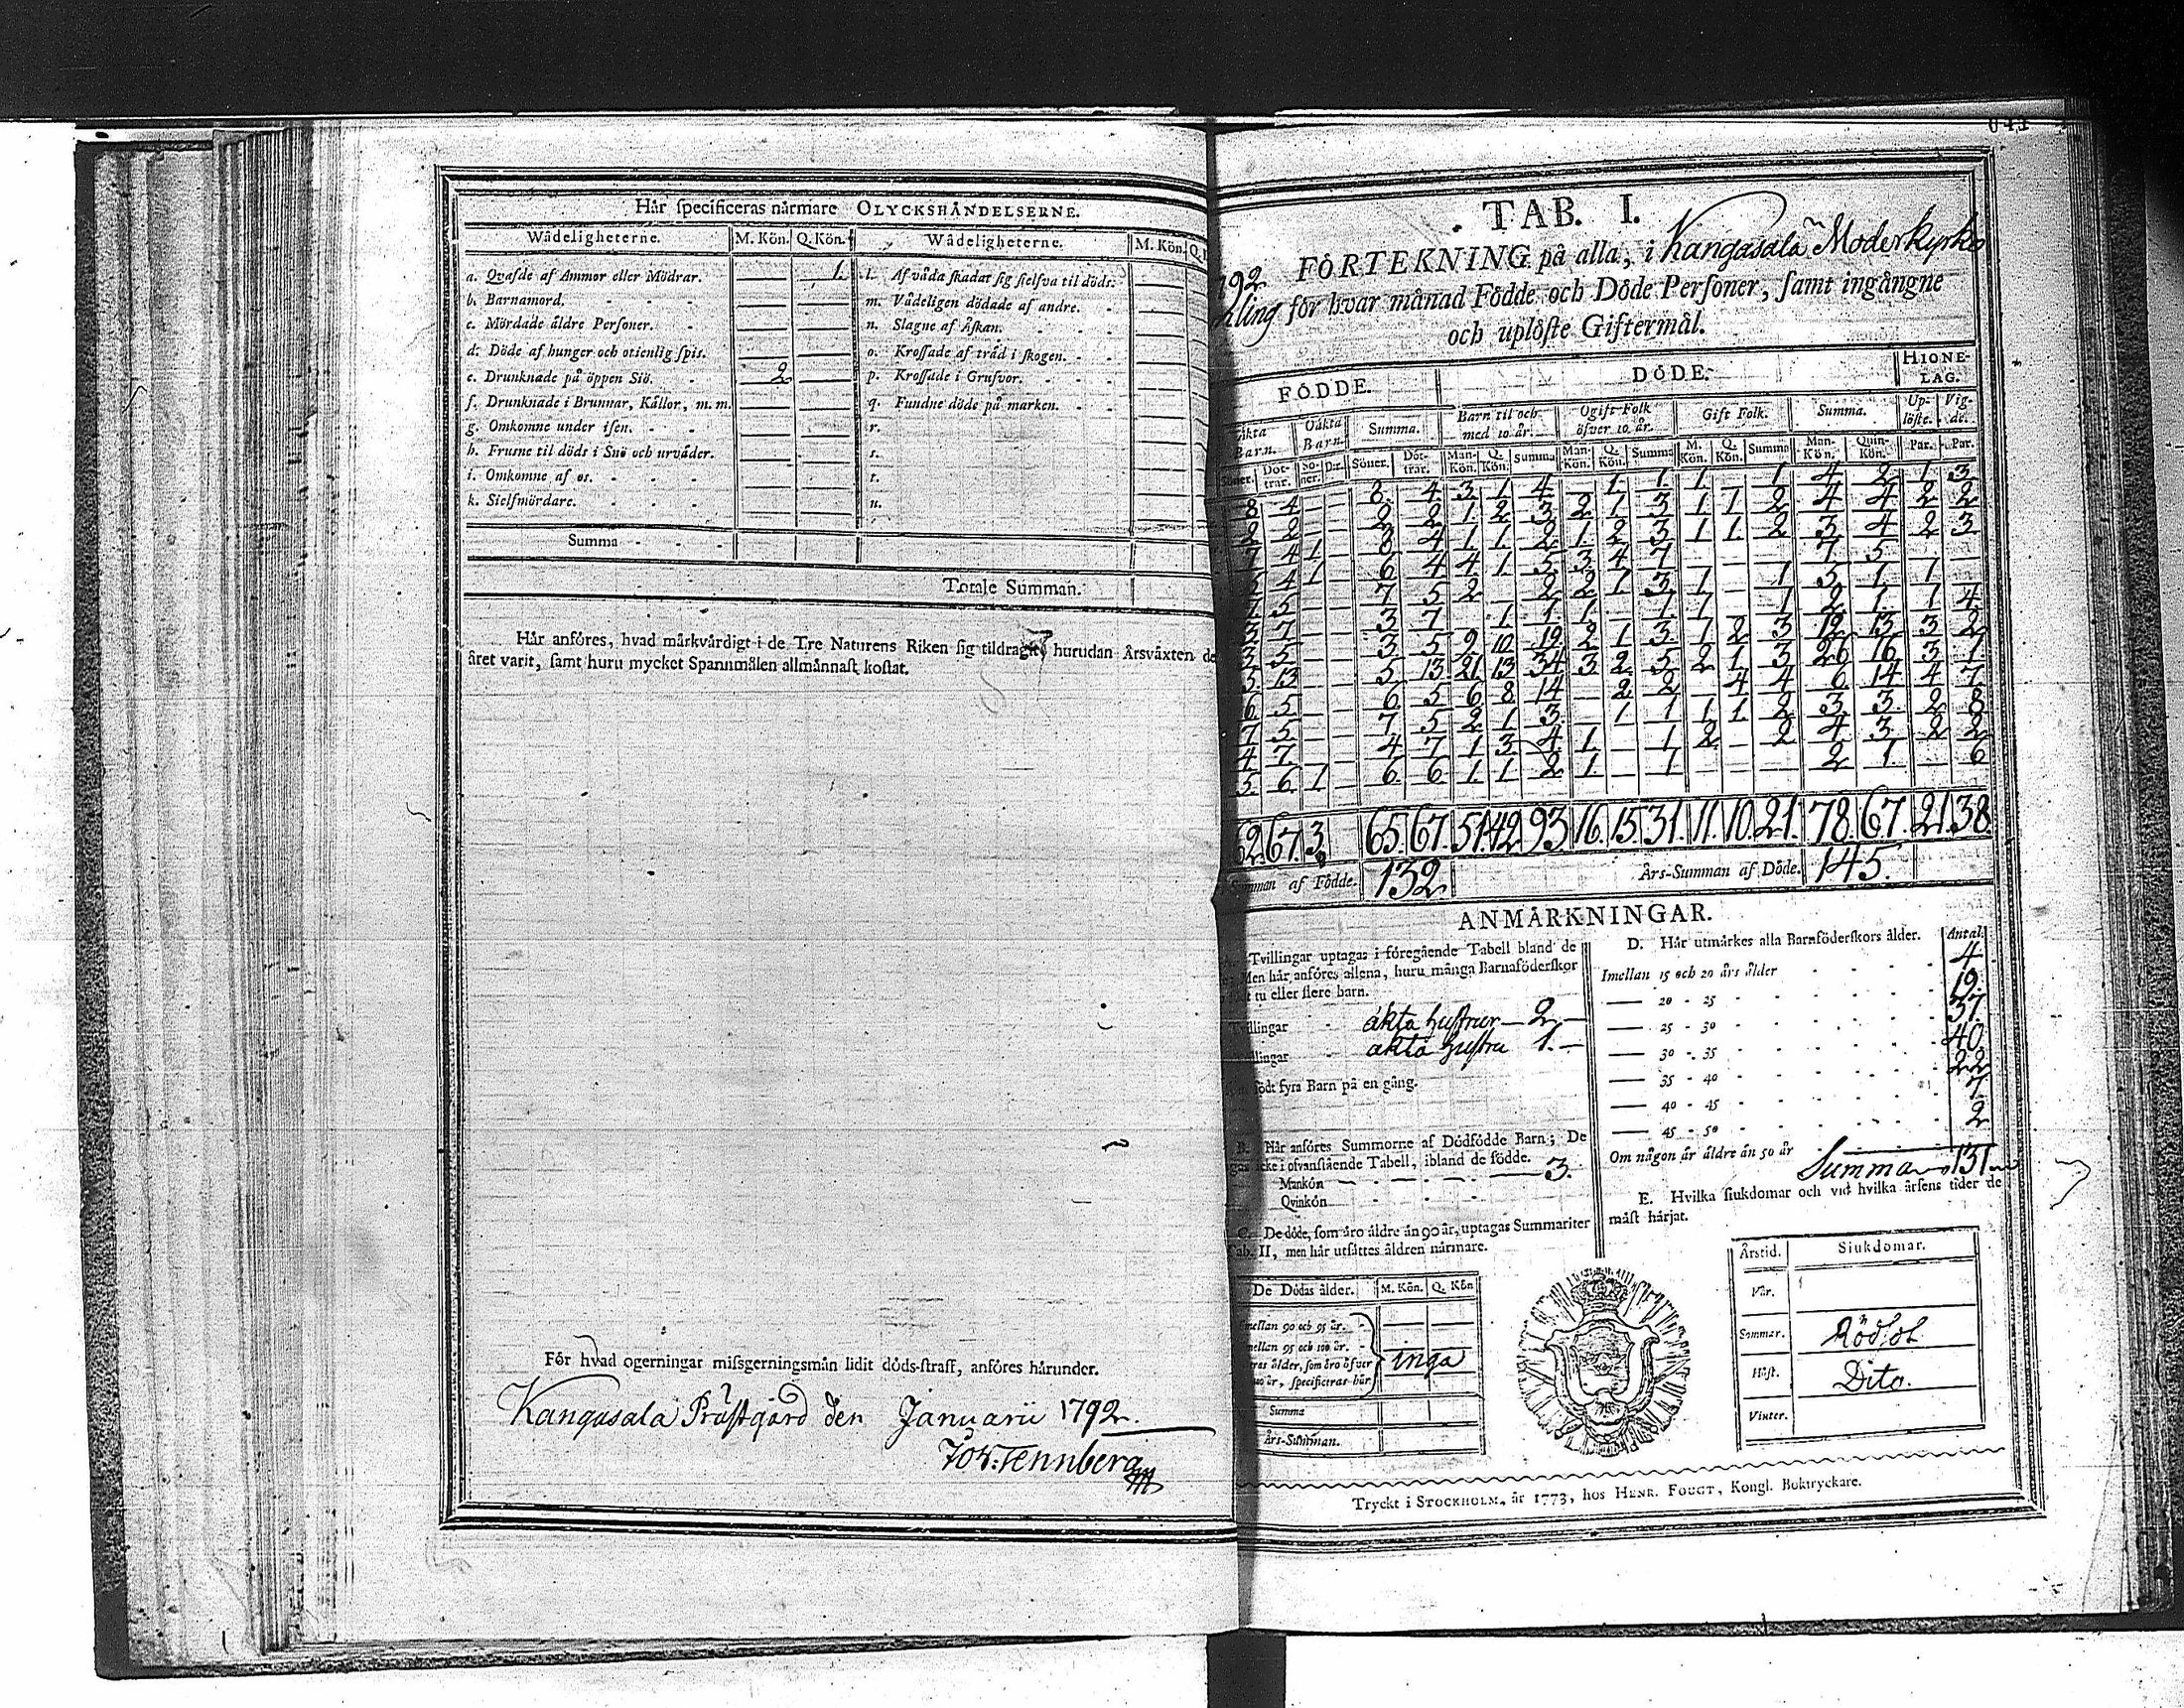 Här specificeras närmare OLYCKSHÄNDELSERNE.
Wådeligheterne. M. Kön. Q. Kön. Wådeligheterne. M. Kön.
a. Qvafde af Ammor eller Mödrar. — 1. l. Af våda skadat sig sielfva til döds. —
b. Barnamord. — — m. Vådeligen dödade af andre. —
c. Mördade äldre Personer. — — n. Slagne af Åskan. —
d. Döde af hunger och otienlig spis. — — o. Krossade af träd i skogen. —
e. Drunknade på öppen Siö. 2 — p. Krossade i Grufvor. —
f. Drunknade i Brunnar, Källor, m. m. — — q. Fundne döde på marken. —
g. Omkomne under isen. — — r. —
h. Frusne til döds i Snö och urväder. — — s. —
i. Omkomne af os. — — t. —
k. Sielfmördare. — — u. —
Summa
Totale Summan.
Här anföres, hvad märkvärdigt i de Tre Naturens Riken sig tildragit, hurudan Årsväxten
året varit, samt huru mycket Spannmålen allmännast kostat.
För hvad ogerningar missgerningsmän lidit döds-straff, anföres härunder.
Kangasala Prästgård den Januarii 1792.
Tennberg
TAB. I.
FÖRTEKNING på alla, i Kangasala Moderkyrko
för hvar månad Födde och Döde Personer, samt ingångne
och uplöste Giftermål.
FÖDDE. DÖDE. HIONELAG.
Äkta Barn. Oäkta Barn. Summa. Barn til och med 10 år. Ogift Folk öfver 10 år. Gift Folk. Summa. Uplöste. Vigde.
Söner. Döttrar. Söner. Dr. Söner. Döttrar. Man-Kön. Q. Kön. Summa Man-Kön. Q. Kön. Summa M. Kön. Q. Kön. Summa Man-Kön. Quin-Kön. Par. Par.
8 4 — — 8. 4 3 1 4 — 1 1 1 — 1 4 2 1 3
2 2 — — 2 2 1 2 3 2 1 3 1 1 2 4 4 2 2
7 4 1 — 8 4 1 1 2 1 2 3 1 1 2 3 4 2 3
5 4 1 — 6 4 4 1 5 3 4 7 — — — 7 5 — —
7 5 — — 7 5 2 — 2 2 1 3 1 — 1 5 1 1 —
3 7 — — 3 7 — 1 1 1 — 1 1 — 1 2 1 1 4
3 5 — — 3 5 9 10 19 2 1 3 1 2 3 12 13 3 2
5 13 — — 5 13 21 13 34 3 2 5 2 1 3 26 16 3 1
6 5 — — 6 5 6 8 14 — 2 2 — 4 4 6 14 4 7
7 5 — — 7 5 2 1 3 — 1 1 1 1 2 3 3 2 8
4 7 — — 4 7 1 3 4 1 — 1 2 — 2 4 3 2 2
5 6 1 — 6 6 1 1 2 1 — 1 — — — 2 1 — 6
62 67. 3. 65. 67. 51. 42. 93 16. 15. 31. 11. 10. 21. 78. 67. 21. 38
Summan af Födde. 132 Års-Summan af Döde. 145.
ANMÄRKNINGAR.
Tvillingar uptagas i föregående Tabell bland de
Men här anföres allena, huru många Barnaföderskor
tu eller flere barn.
äkta hustrur — 2. —
äkta hustru 1. —
födt fyra Barn på en gång.
B. Här anföres Summorne af Dödfödde Barn; De
icke i ofvanstående Tabell, ibland de födde.
Mankön — — — — 3.
Qvinkön
C. De döde, som äro äldre än 90 år, uptagas Summariter
Tab. II, men här utsättes åldren närmare.
De Dödas ålder. M. Kön. Q. Kön
Imellan 90 och 95 år. — —
Imellan 95 och 100 år. — —
ålder, som äro öfver
år, specificeras här. inga
Summa
Års-Summan.
D. Här utmärkes alla Barnföderskors ålder. Antal
Imellan 15 och 20 års ålder 4
— 20 - 25 19
— 25 - 30 37
— 30 - 35 40
— 35 - 40 22
— 40 - 45 7
— 45 - 50 2
Om någon är äldre än 50 år —
Summa 131
E. Hvilka siukdomar och vid hvilka årsens tider de
mäst härjat.
Årstid. Siukdomar.
Vår.
Sommar. Rödsot
Höst. Dito.
Vinter.
Tryckt i STOCKHOLM, år 1773, hos HENR. FOUGT, Kongl. Boktryckare.